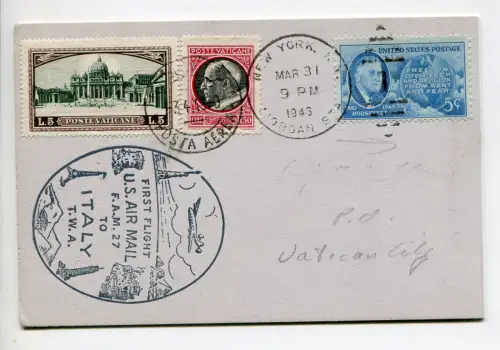 L.5 POSTE VATICANE L.5
POSTE VATICANE
50
POSTA AEREA
NEW YORK, N.Y.
MAR 31
9 PM
1946
MORGAN STA.
UNITED STATES POSTAGE
FREEDOM
OF SPEECH
AND RELIGION
FROM WANT
AND FEAR
ROOSEVELT
5¢
FIRST FLIGHT
U.S. AIR MAIL
F.A.M. 27
TO
ITALY
T.W.A.
P.O.
Vatican City